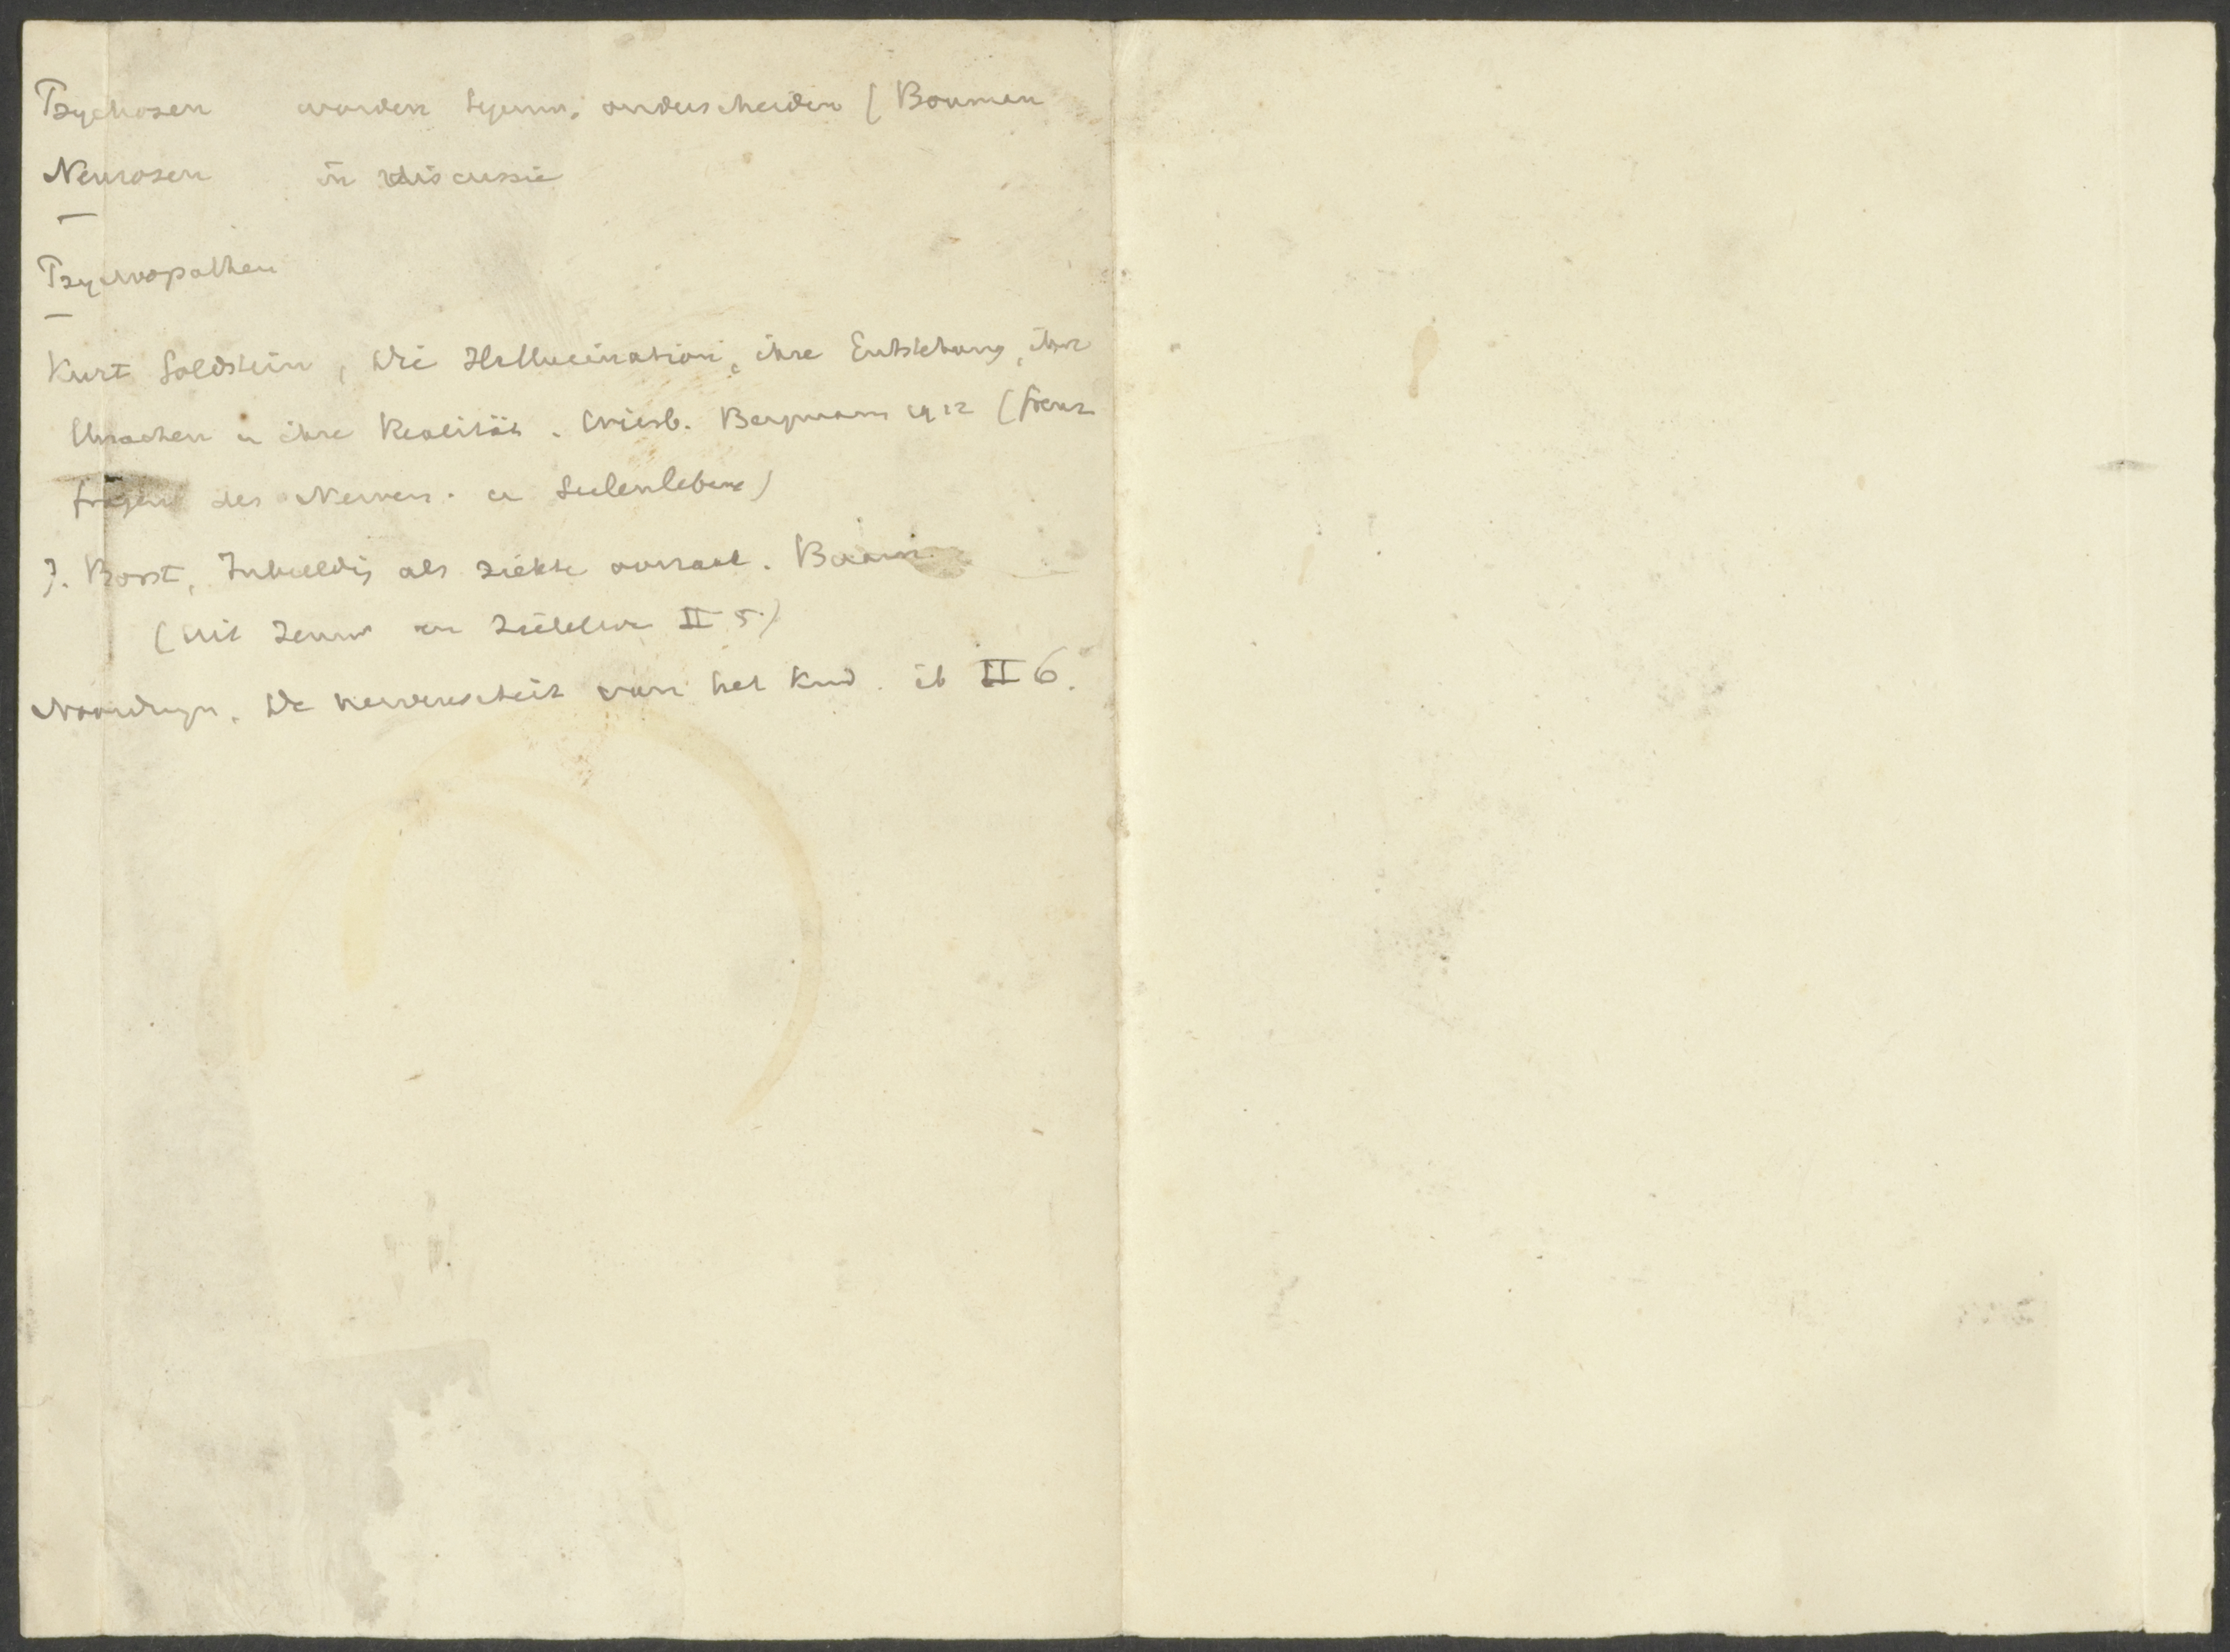 Psychosen worden tegenw. onderscheiden (Bouman
Neurosen in discussie
Psychopathen
Kurt Goldstein, Die Hallucination, ihre Entstehung, ihre
Ursachen u ihre Realität. Wiesb. Bergmann 1912 (Grenz
fragen des Nerven. u Seelenlebens)
J. Borst, Inbeelding als ziekte oorzaak. Baarn
(Uit Zenuw en Zieleleven II 5.)
de nerveusiteit van het kind. ib II 6.